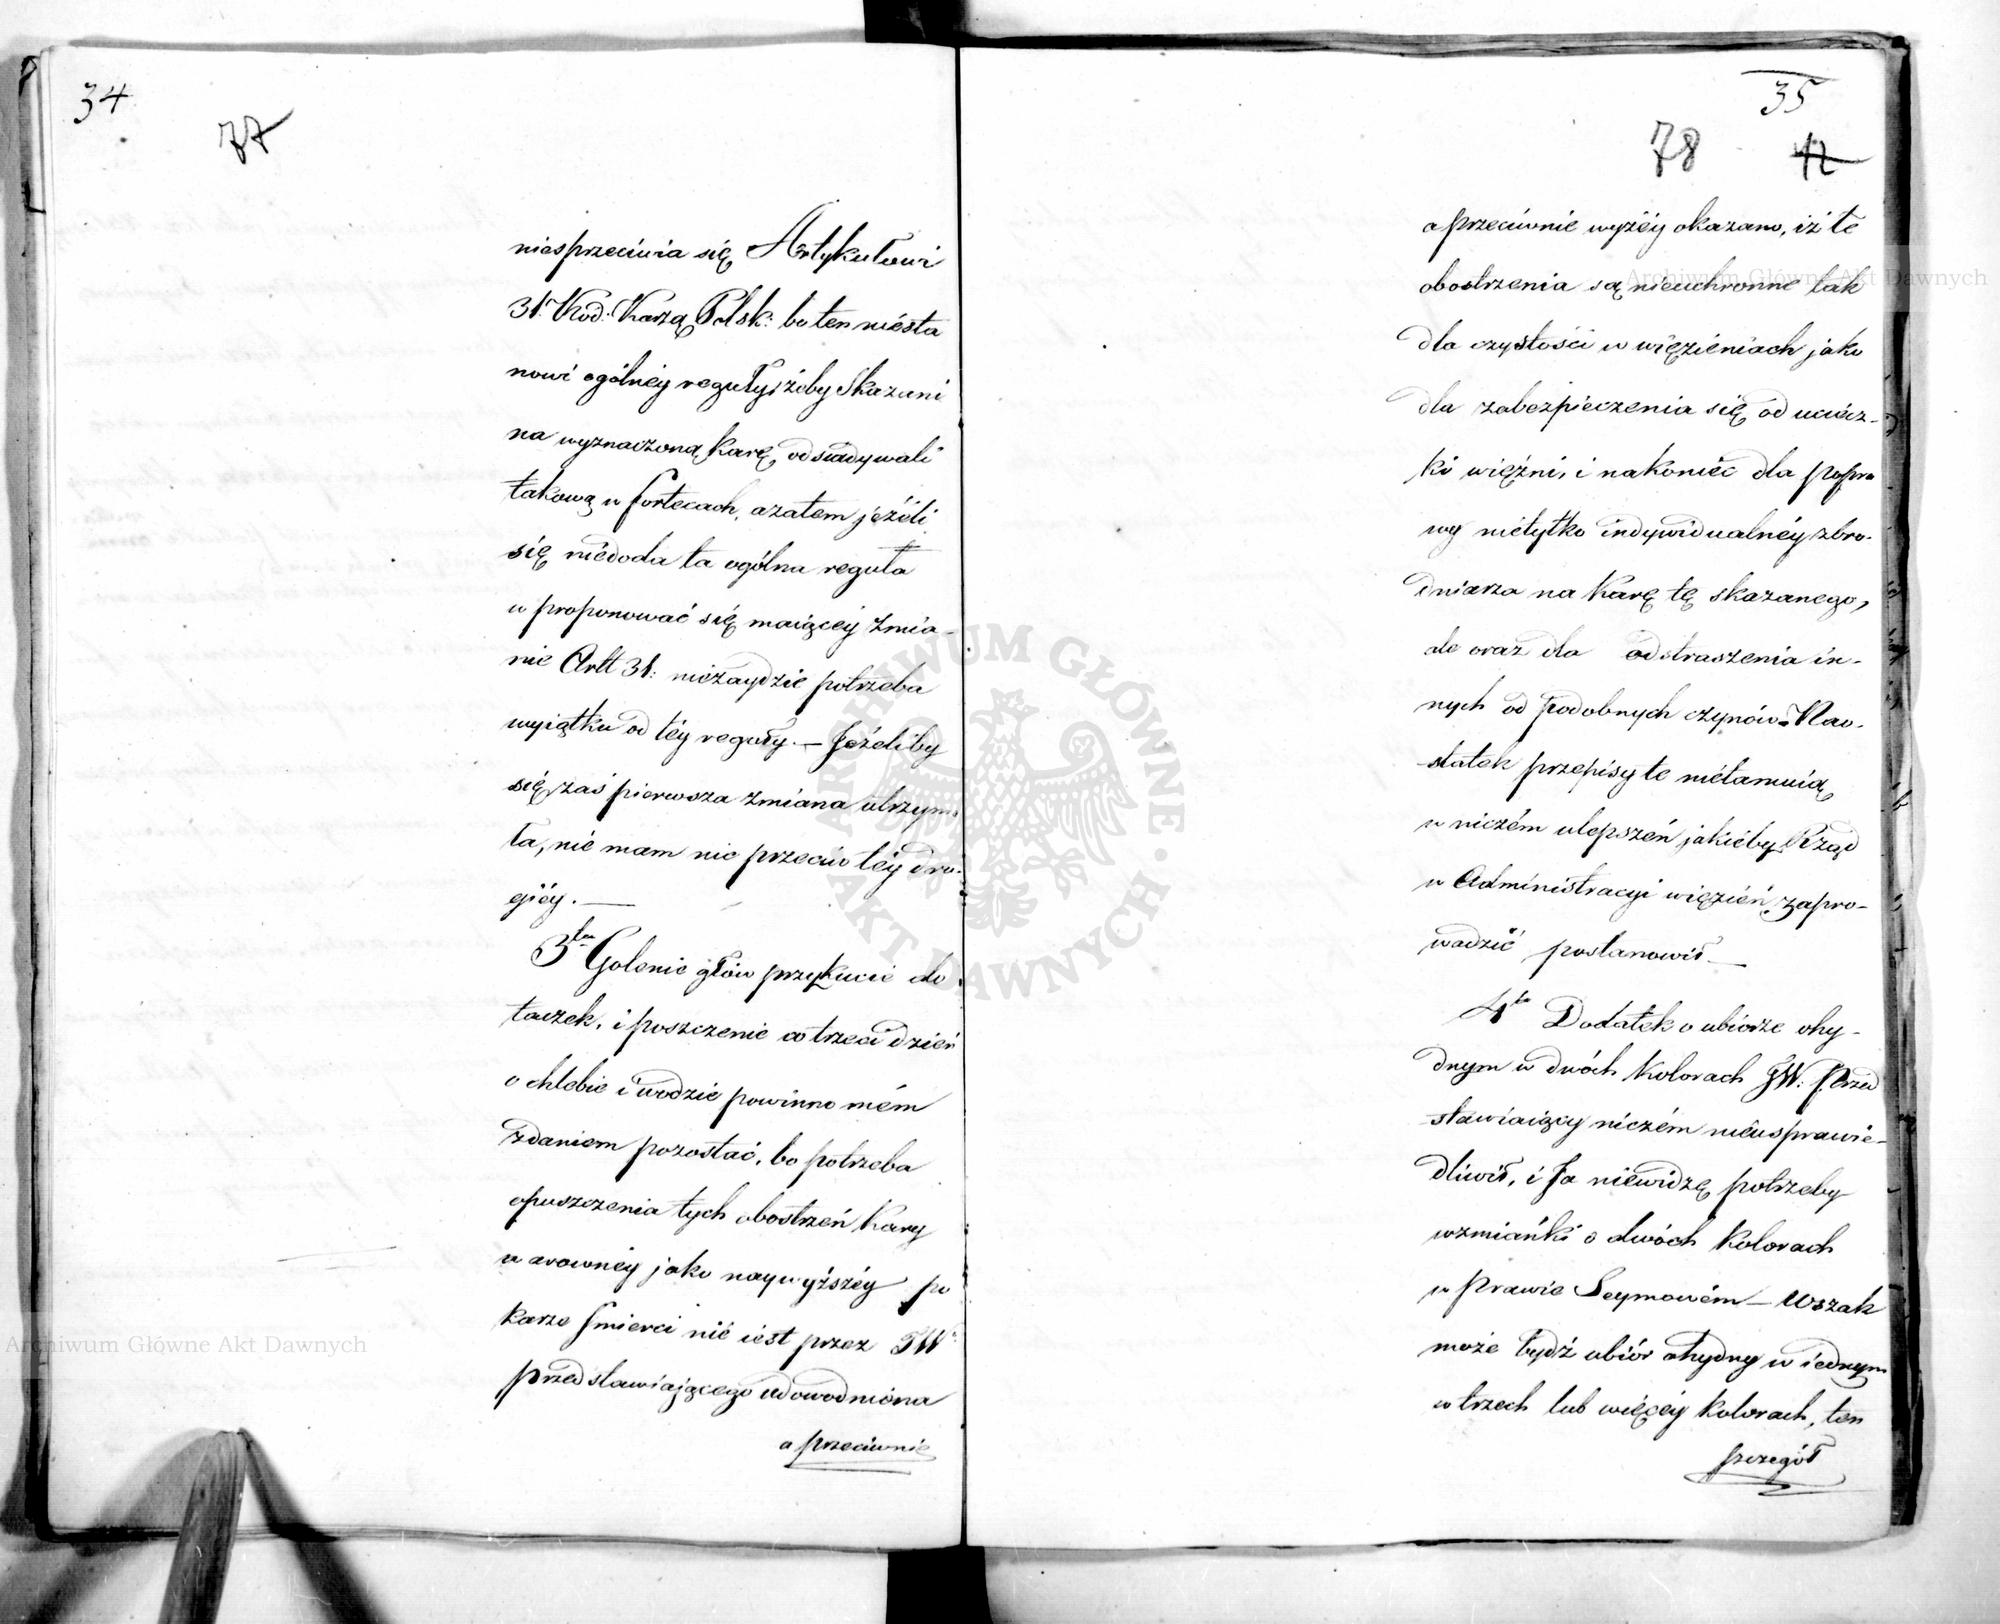 34
77
niesprzeciwia się Artykułowi
31. Kod: Karzą: Polsk: bo ten niésta
nowi ogólnéy reguły, żeby Skazani
na wyznaczoną karę, odsiadywali
takową w fortecach, azatem jeżéli
się niédoda ta ogólna reguła
w proponować się maiącéy zmia-
nie Artt 31: niézaydzie potrzeba
wyiątku od téy reguły. — Jeżeliby
się zaś pierwsza zmiana utrzym.
ła, nié mam nic przeciw téy dru-
giéy. —
3tio Golenie głów przykucie do
taczek, i poszczenie co trzeci dzień
o chlebie i wodzie powinno mém
zdaniem pozostać, bo potrzeba
opuszczenia tych obostrzeń kary
warownéy jako naywyższéy po
karze śmierci nié iest przez JW:
przedstawiającego udowodnióna
a przeciwnie
35
78
42
a przeciwnie wyżéy okazano, iż te
obostrzenia są nieuchronne tak
dla czystości w więzieniach jako
dla zabezpieczenia się od uciecz-
ki więźni, i nakoniéc dla popra
wy niétylko indywidualnéy zbro-
dniarza na karę tę skazanego,
ale oraz dla odstraszenia in-
nych od podobnych czynów. Nao-
statek przepisy te niétamuią
w niczém ulepszeń jakiéby Rząd
w Administracyi więzień zapro-
wadzić postanowił —
4to Dodatek o ubiorze ohy-
dnym w dwóch kolorach JW: Przed
stawiaiący niczém niéusprawie-
dliwił, i Ja niewidzę potrzeby
wzmiańki o dwóch kolorach
w prawie Seymowém — Wszak
może bydź ubiór ohydny w iednym
w trzech lub więcéy kolorach, ten
szczegół
Archiwum Główne Akt Dawnych
Archiwum Główne Akt Dawnych
ARCHIWUM GŁÓWNE AKT DAWNYCH